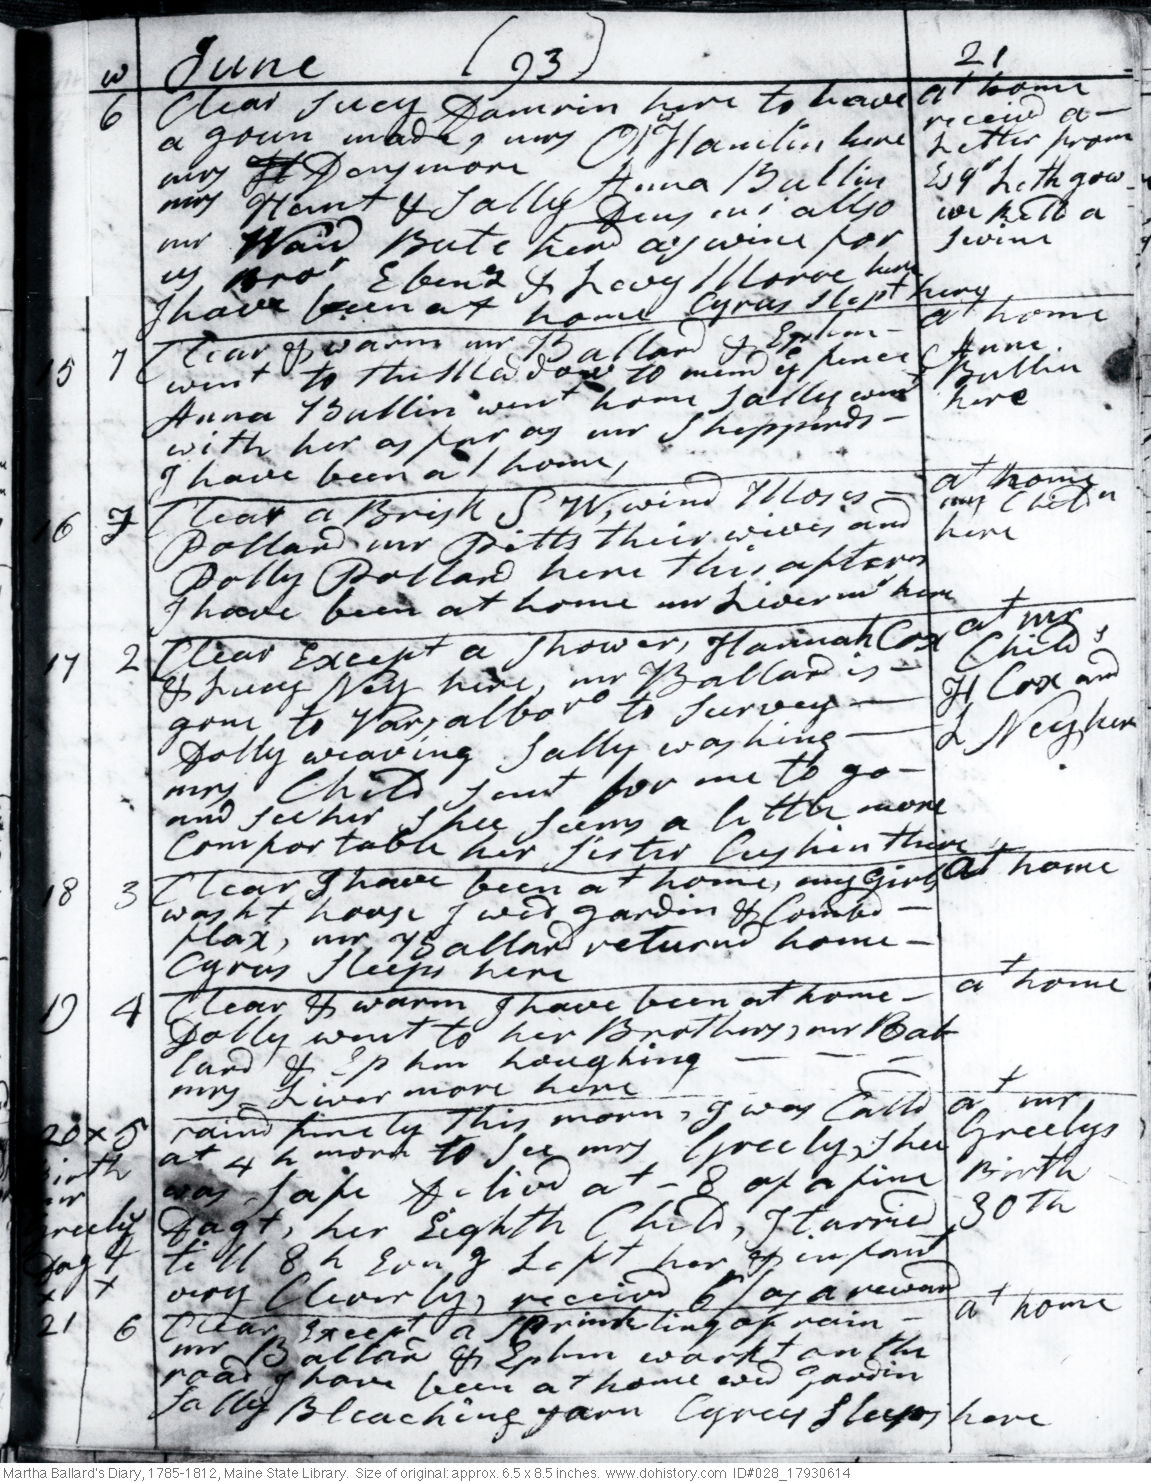 w June (93) 21
6 Clear Lucy Damrin here to have at home
a goun made, mrs Ol Hamlin here receivd a-
mrs Densmore Letter from
mrs Hant & Sally Anna Bullin Esqr Lethgow
mr Ward Bute herd a swine for we killd a
us Bror Ebenz & Levy Moroe here swine
I have been at home Cyrus Slept here
15 7 Clear & warm mr Ballard & Ephm- at home
went to the Meddow to mend ye fence Anna
Anna Bullin went home Sally went Bullin
with her as far as mr Shepperds- here
I have been at home,
16 F Clear a Brisk S W, wind Moses- at home
Pollard mr Pitts their wives and mrs
Dolly Pollard here this aftern here
I have been at home mr Livermr here
17 2 Clear Except a shower, Hannah Cox at mr
& Lucy Ney here, mr Ballard is- Childs
gone to Varsalboro to survey- H Cox and
Dolly weaving Sally washing- L Ney here
mrs Child sent for me to go-
and see her shee seems a little more
Comfortable her sister Cushin there
18 3 Clear I have been at home, my girls at home
washt house I wed gardin & Combd-
flax, mr Ballard returnd home-
Cyrus Sleeps here
19 4 Clear & warm I have been at home- at home
Dolly went to her Brothers, mr Bal
lard & Ephm houghing - - -
mrs Livermore here
20 x 5 raind finely this morn, I was Calld at mr
Birth at 4 h morn to See mrs Greely, shee Greelys
mr was safe delivd at-8 of a fine Birth
Greely Dagt, her Eighth Child, I tarried 30th
Dagt till 8 h Evng Left her & infant
x x very Cleverly, receivd 6/ as a reward
21 6 Clear Except a sprinkling of rain- at home
mr Ballard & Ephm workt on the
road I have been at home wed gardin
Sally Bleaching yarn Cyrus Sleeps here
Martha Ballard's Diary, 1785-1812, Maine State Library. Size of original: approx. 6.5 x 8.5 inches. www.dohistory.com ID#028_17930614